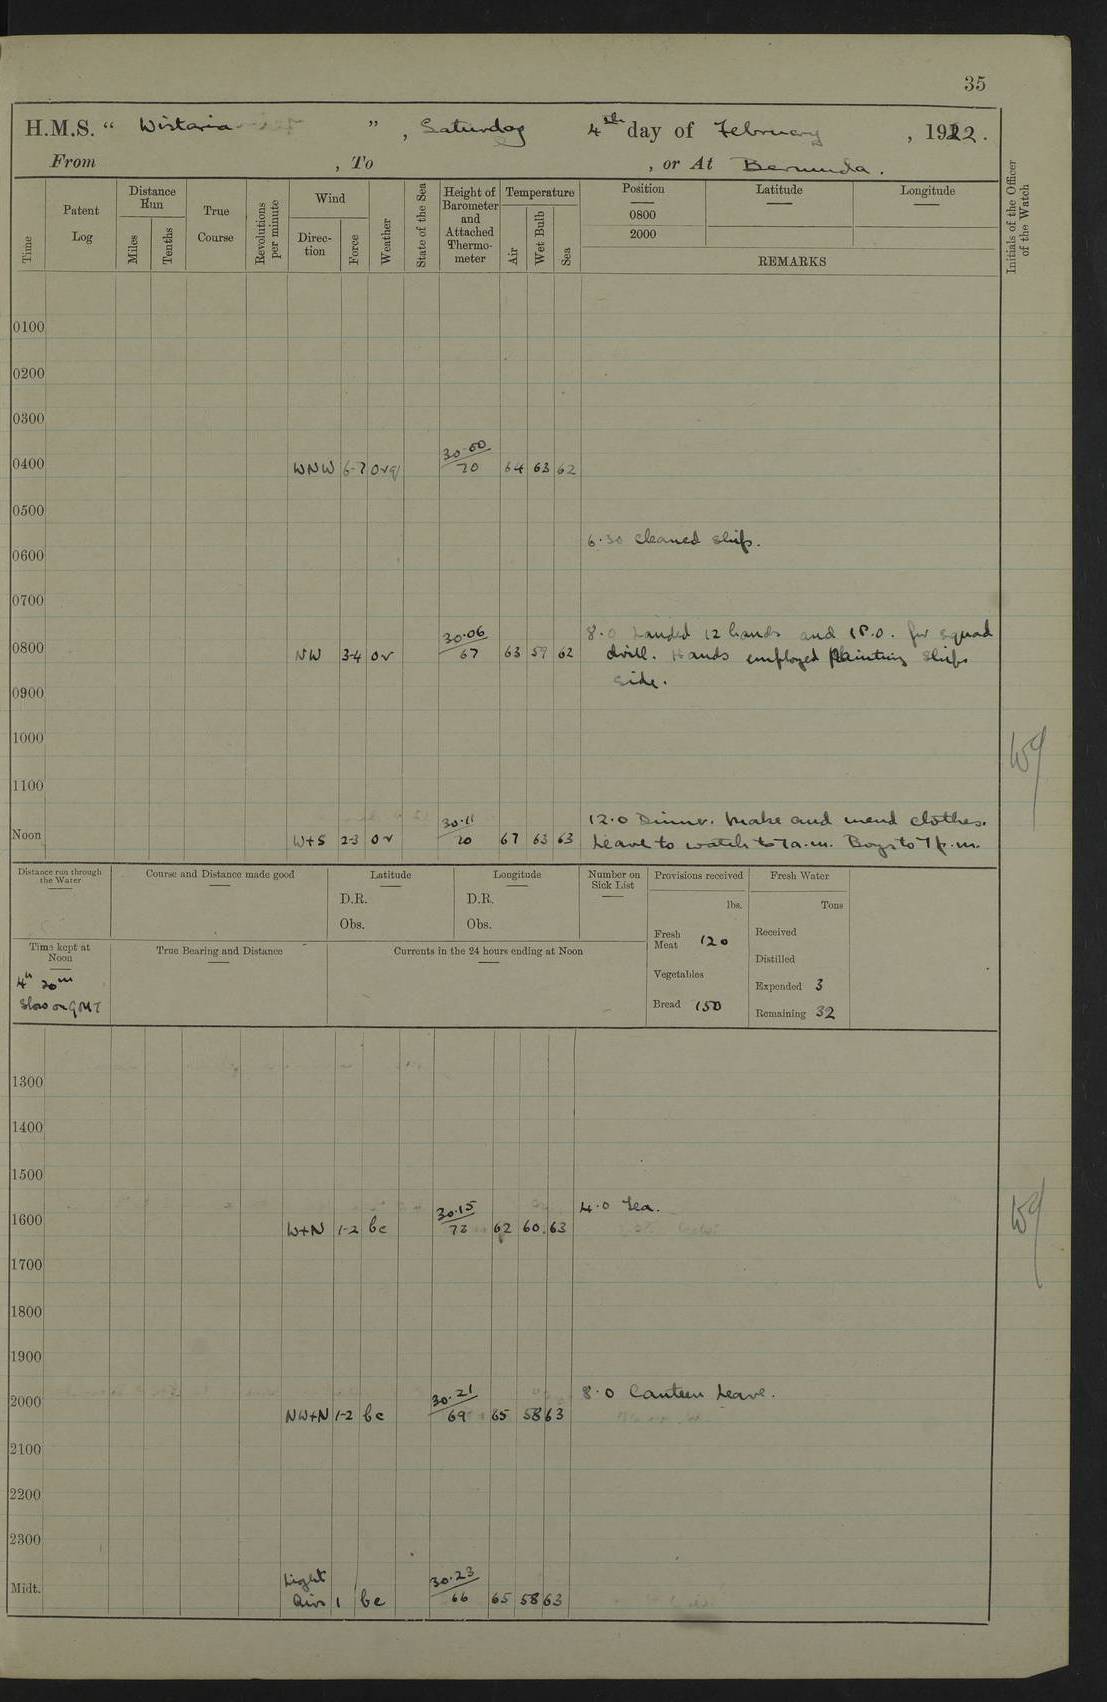 35
H.M.S. “ Wistaria ” , Saturday 4th day of February , 1922 .
From , To , or At Bermuda .
Time
Patent Log
Distance Run
Miles
Tenths
True Course
Revolutions per minute
Wind
Direc-tion
Force
Weather
State of the Sea
Height of Barometer and Attached Thermo-meter
Temperature
Air
Wet Bulb
Sea
Position
0800
2000
Latitude
Longitude
REMARKS
Initials of the Officer of the Watch
0100
0200
0300
0400 WNW 6-7 orq 30.00/70 64 63 62
0500
6.30 cleaned ship.
0600
0700
8.0 Landed 12 hands and 1 P.O. for squad
0800 NW 3-4 or 30.06/67 63 59 62 drill. Hands employed Painting ships
side.
0900
1000
1100
12.0 Dinner. Make and mend clothes.
Noon W+S 2-3 or 30.11/70 67 63 63 Leave to watch to 7 a.m. Boys to 7 p.m.
Distance run through the Water
Course and Distance made good
Latitude
D.R.
Obs.
Longitude
D.R.
Obs.
Number on Sick List
Provisions received
lbs.
Fresh Meat 120
Vegetables
Bread 150
Fresh Water
Tons
Received
Distilled
Expended 3
Remaining 32
Time kept at Noon
4h 20m
Slow on GMT
True Bearing and Distance
Currents in the 24 hours ending at Noon
1300
1400
1500
4.0 Tea.
1600 W+N 1-2 bc 30.15/73 62 60 63
1700
1800
1900
8.0 Canteen Leave.
2000 NW+N 1-2 bc 30.21/69 65 58 63
2100
2200
2300
Midt. Light Airs 1 bc 30.23/66 65 58 63